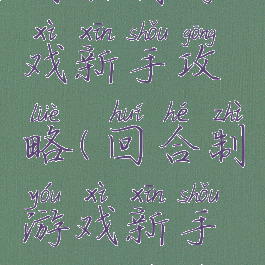 xì xīn shǒu gōng
戏新手攻
lüè huí hé zhì
略(回合制
yóu xì xīn shǒu
游戏新手